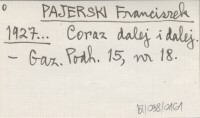 PAJERSKI Franciszek
1927... Coraz dalej i dalej.
– Gaz. Podh. 15, nr 18.